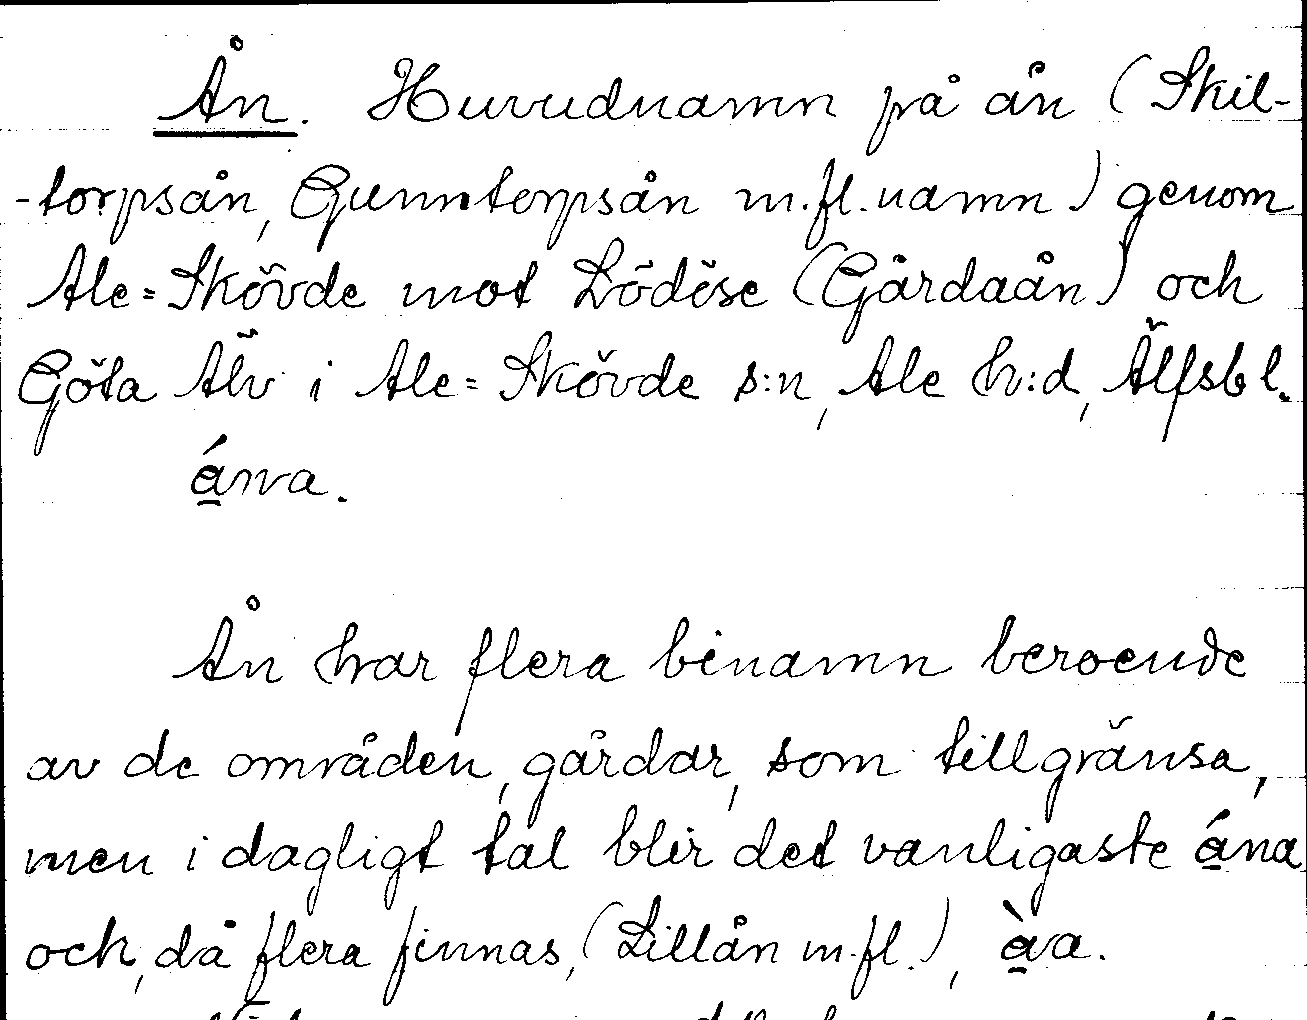 Ån. Huvudnamn på ån (Skil-
-torpsån, Gunntorpsån m.fl. namn) genom
Ale=Skövde mot Lödöse (Gårdaån) och
Göta Älv i Ale=Skövde s:n, Ale h:d, Älfsb l.
Ån har flera binamn beroende
av de områden, gårdar, som tillgränsa,
men i dagligt tal blir det vanligaste á̲na
och, då flera finnas, (Lillån m.fl.), à̲a.